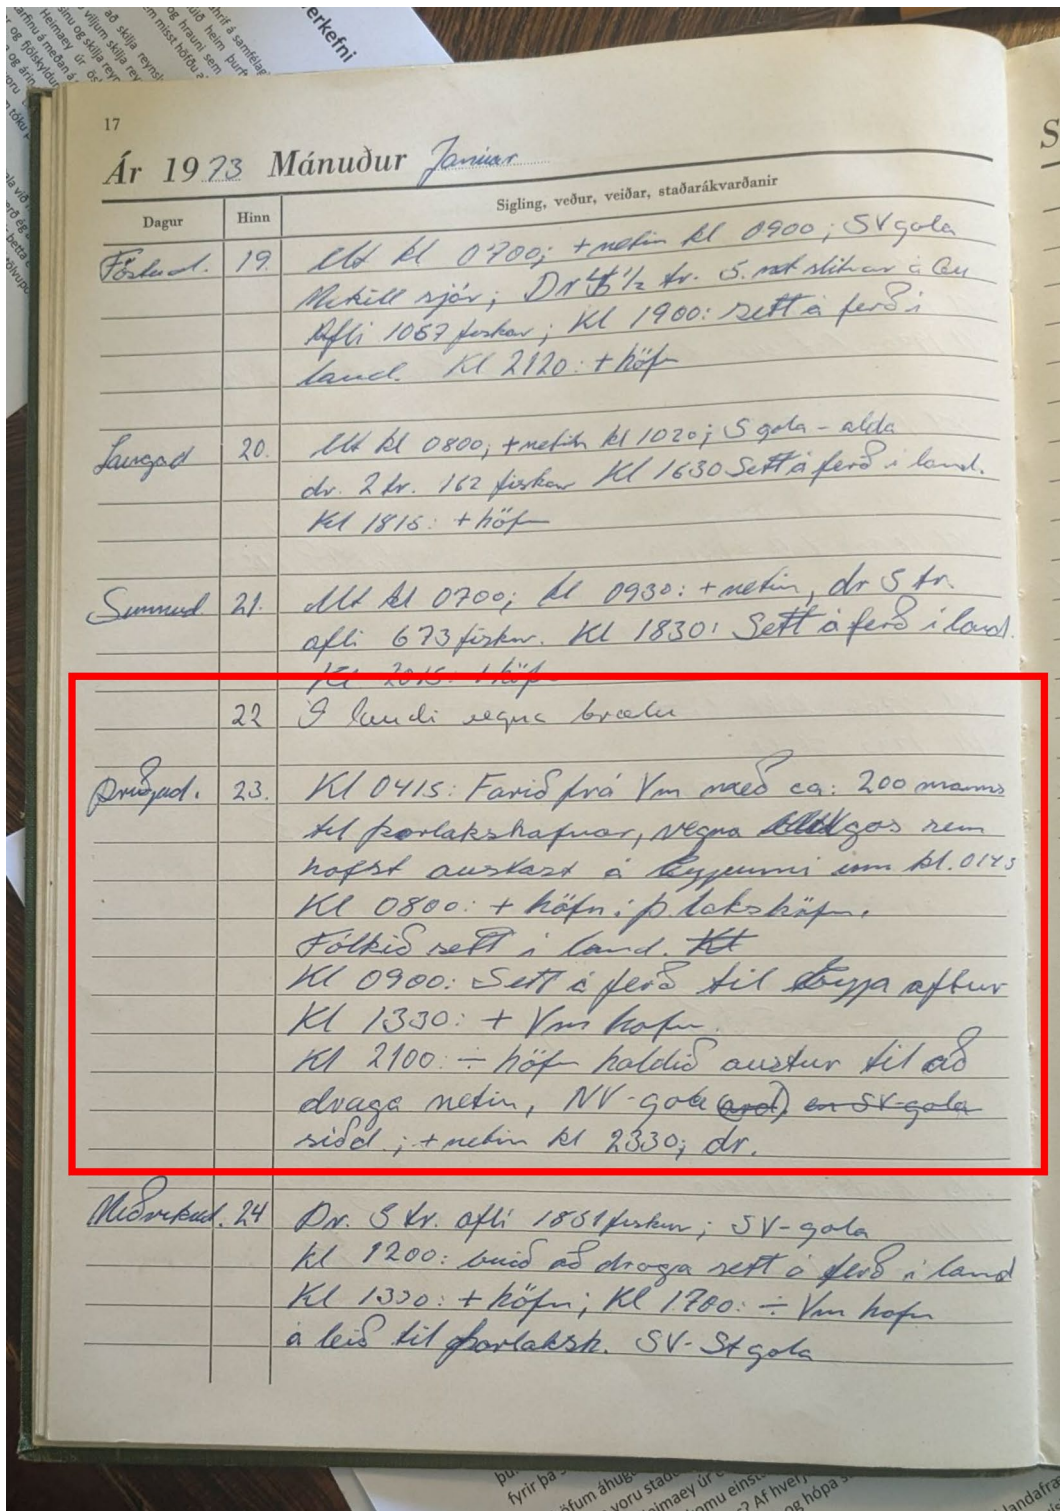 verkefni
17
Ár 1973 Mánuður Janúar
Dagur Hinn Sigling, veður, veiðar, staðarákvarðanir
Föstud. 19. Út kl 0700; + netin kl 0900; SV gola
Mikill sjór; Dr 1/2 tr. 5. net slitnar á
Afli 1067 fiskar; Kl 1900: sett á ferð í
land. Kl 2120: + höfn
Laugad 20. Út kl 0800; + netin kl 1020; S gola - alda
dr. 2 tr. 162 fiskar Kl 1630 Sett á ferð í land.
Kl 1815: + höfn
Sunnud. 21. Út kl 0700; kl 0930: + netin, dr 5 tr.
afli 673 fiskar. Kl 1830: Sett á ferð í land.
Kl 2015: + höfn
22 Í landi vegna brælu
Þriðjud. 23. Kl 0415: Farið frá Vm með ca: 200 manns
til þorlakshafnar, vegna gos sem
hofst austast á Eyjunni inn kl. 0145
Kl 0800: + höfn í þ lakshöfn.
Fólkið sett í land. Kl
Kl 0900: Sett á ferð til Eyja aftur
Kl 1330: + Vm hofn.
Kl 2100: ÷ höfn haldið austur til að
draga netin, NV-gola en SV-gola
; + netin kl 2330; dr.
Miðvikud. 24 Dr. 5 tr. afli 1851 fiskur; SV-gola
Kl 1200: buið að draga sett á ferð í land
Kl 1330: + höfn; Kl 1700: ÷ Vm hofn
á leið til þorlaksh. SV-St gola